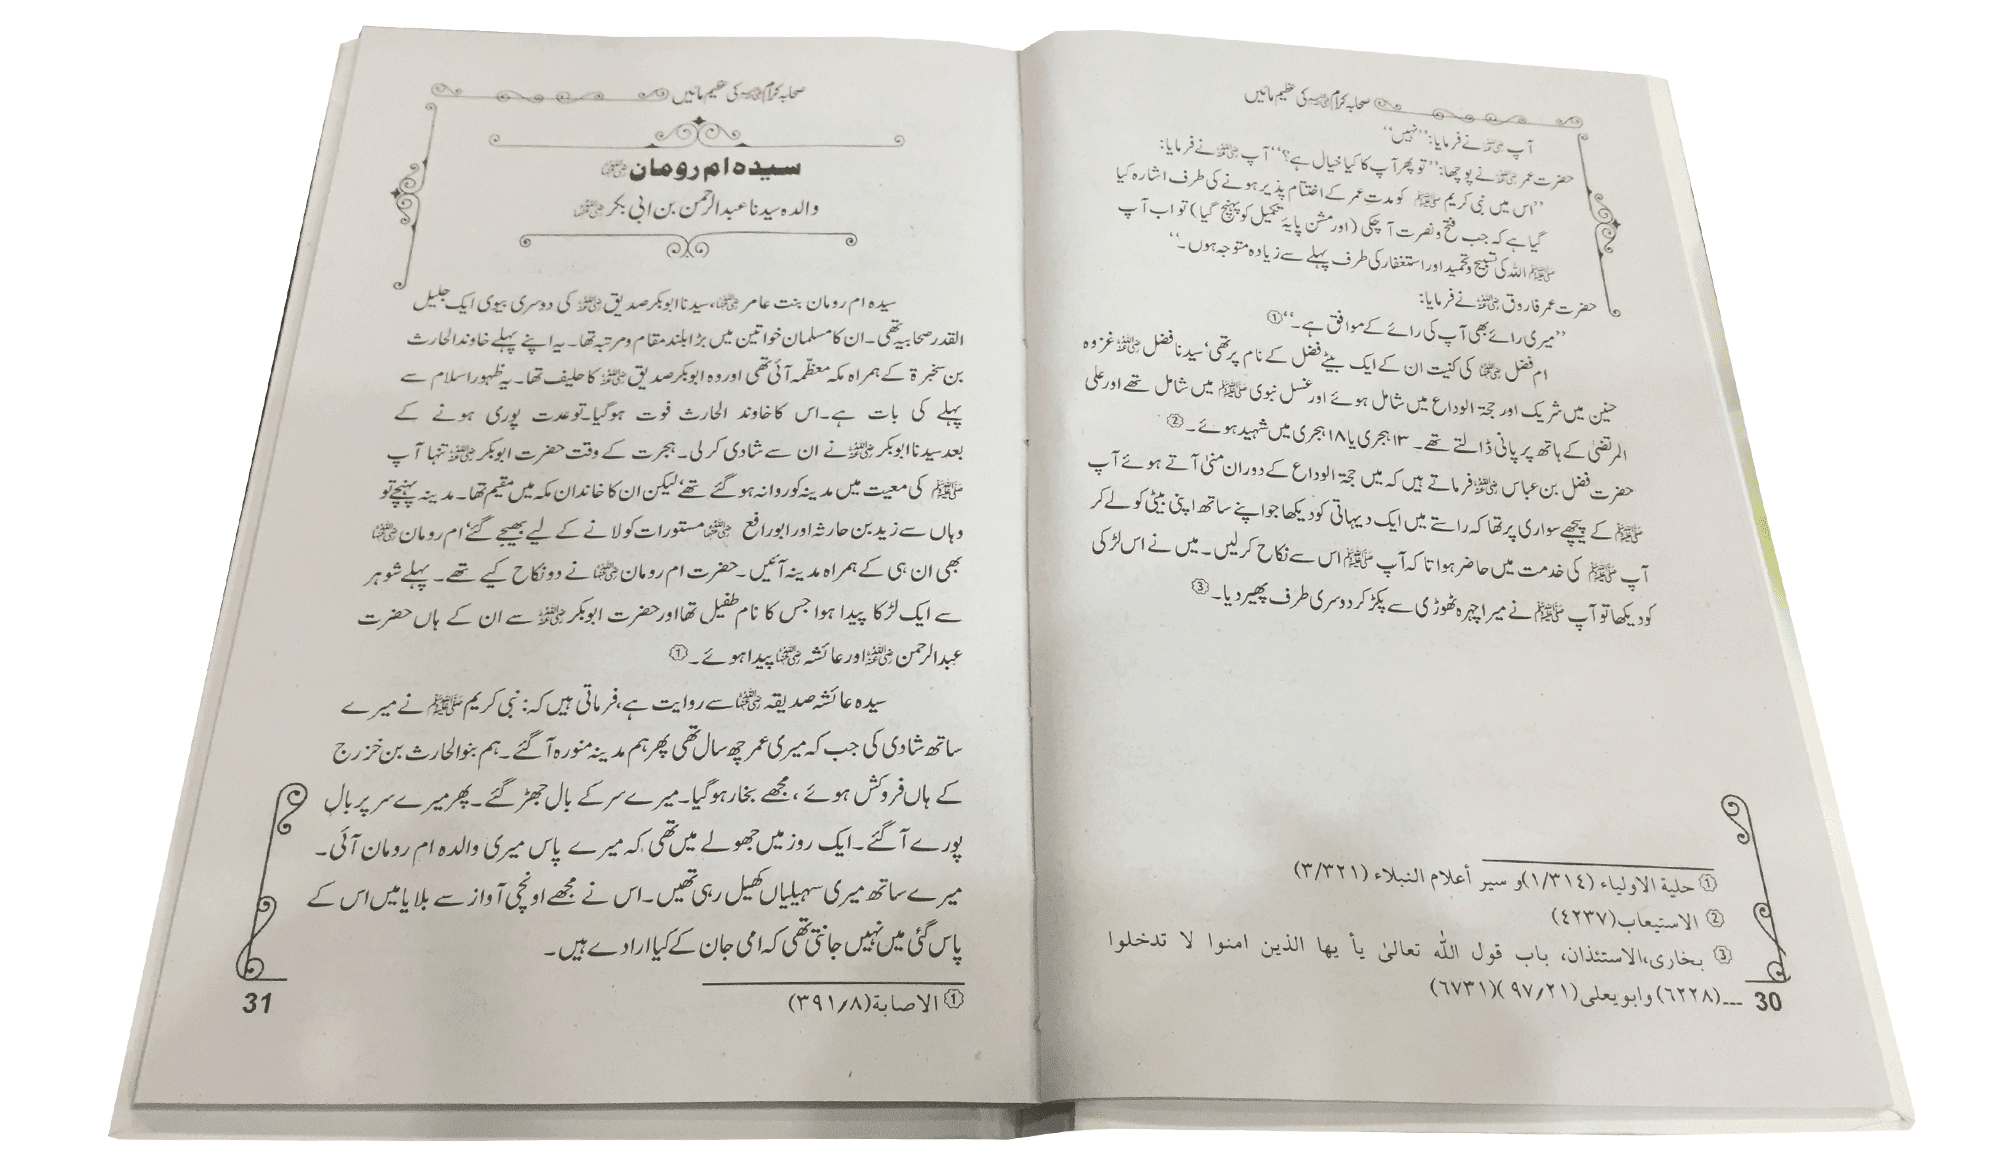 صحابہ کرام رضی اللہ عنہم کی عظیم مائیں
آپ رضی اللہ عنہ نے فرمایا: ’’نہیں‘‘
حضرت عمر رضی اللہ عنہ نے پوچھا: ’’تو پھر آپ کا کیا خیال ہے؟‘‘ آپ رضی اللہ عنہ نے فرمایا:
’’اس میں نبی کریم ﷺ کو مدتِ عمر کے اختتام پذیر ہونے کی طرف اشارہ کیا
گیا ہے کہ جب فتح و نصرت آ چکی (اور مشن پایۂ تکمیل کو پہنچ گیا) تو اب آپ
ﷺ اللہ کی تسبیح و تحمید اور استغفار کی طرف پہلے سے زیادہ متوجہ ہوں۔‘‘
حضرت عمر فاروق رضی اللہ عنہ نے فرمایا:
’’میری رائے بھی آپ کی رائے کے موافق ہے۔‘‘①
ام فضل رضی اللہ عنہا کی کنیت ان کے ایک بیٹے فضل کے نام پر تھی‘ سیدنا فضل رضی اللہ عنہ غزوہ
حنین میں شریک اور حجۃ الوداع میں شامل ہوئے اور غسل نبوی ﷺ میں شامل تھے اور علی
المرتضیٰ کے ہاتھ پر پانی ڈالتے تھے۔ ۱۳ ہجری یا ۱۸ ہجری میں شہید ہوئے۔②
حضرت فضل بن عباس رضی اللہ عنہ فرماتے ہیں کہ میں حجۃ الوداع کے دوران منیٰ آتے ہوئے آپ
ﷺ کے پیچھے سواری پر تھا کہ راستے میں ایک دیہاتی کو دیکھا جو اپنے ساتھ اپنی بیٹی کو لے کر
آپ ﷺ کی خدمت میں حاضر ہوا تا کہ آپ ﷺ اس سے نکاح کر لیں۔ میں نے اس لڑکی
کو دیکھا تو آپ ﷺ نے میرا چہرہ ٹھوڑی سے پکڑ کر دوسری طرف پھیر دیا۔③
① حلية الاولياء (۱/۳۱٤) و سير أعلام النبلاء (۳/۳۲۱)
② الاستيعاب (٤۲۳۷)
③ بخاری، الاستئذان، باب قول الله تعالیٰ يأ يها الذين امنوا لا تدخلوا
--- (٦۲۲۸) وابو يعلى (۹۷/۲۱) (٦۷۳۱)
30
صحابہ کرام رضی اللہ عنہم کی عظیم مائیں
سیدہ ام رومان رضی اللہ عنہا
والدہ سیدنا عبدالرحمن بن ابی بکر رضی اللہ عنہما
سیدہ ام رومان بنت عامر رضی اللہ عنہا، سیدنا ابوبکر صدیق رضی اللہ عنہ کی دوسری بیوی ایک جلیل
القدر صحابیہ تھی۔ ان کا مسلمان خواتین میں بڑا بلند مقام و مرتبہ تھا۔ یہ اپنے پہلے خاوند الحارث
بن سخبرۃ کے ہمراہ مکہ معظّمہ آئی تھی اور وہ ابوبکر صدیق رضی اللہ عنہ کا حلیف تھا۔ یہ ظہور اسلام سے
پہلے کی بات ہے۔ اس کا خاوند الحارث فوت ہو گیا۔ تو عدت پوری ہونے کے
بعد سیدنا ابوبکر رضی اللہ عنہ نے ان سے شادی کر لی۔ ہجرت کے وقت حضرت ابوبکر رضی اللہ عنہ تنہا آپ
ﷺ کی معیت میں مدینہ کو روانہ ہو گئے تھے‘ لیکن ان کا خاندان مکہ میں مقیم تھا۔ مدینہ پہنچے تو
وہاں سے زید بن حارثہ اور ابو رافع رضی اللہ عنہما مستورات کو لانے کے لیے بھیجے گئے‘ ام رومان رضی اللہ عنہا
بھی ان ہی کے ہمراہ مدینہ آئیں۔ حضرت ام رومان رضی اللہ عنہا نے دو نکاح کیے تھے۔ پہلے شوہر
سے ایک لڑکا پیدا ہوا جس کا نام طفیل تھا اور حضرت ابوبکر رضی اللہ عنہ سے ان کے ہاں حضرت
عبدالرحمن رضی اللہ عنہ اور عائشہ رضی اللہ عنہا پیدا ہوئے۔①
سیدہ عائشہ صدیقہ رضی اللہ عنہا سے روایت ہے، فرماتی ہیں کہ: نبی کریم ﷺ نے میرے
ساتھ شادی کی جب کہ میری عمر چھ سال تھی پھر ہم مدینہ منورہ آ گئے۔ ہم بنو الحارث بن خزرج
کے ہاں فروکش ہوئے، مجھے بخار ہو گیا۔ میرے سر کے بال جھڑ گئے۔ پھر میرے سر پر بال
پورے آ گئے۔ ایک روز میں جھولے میں تھی کہ میرے پاس میری والدہ ام رومان آئی۔
میرے ساتھ میری سہیلیاں کھیل رہی تھیں۔ اس نے مجھے اونچی آواز سے بلایا میں اس کے
پاس گئی میں نہیں جانتی تھی کہ امی جان کے کیا ارادے ہیں۔
① الاصابة (۳۹۱/۸)
31